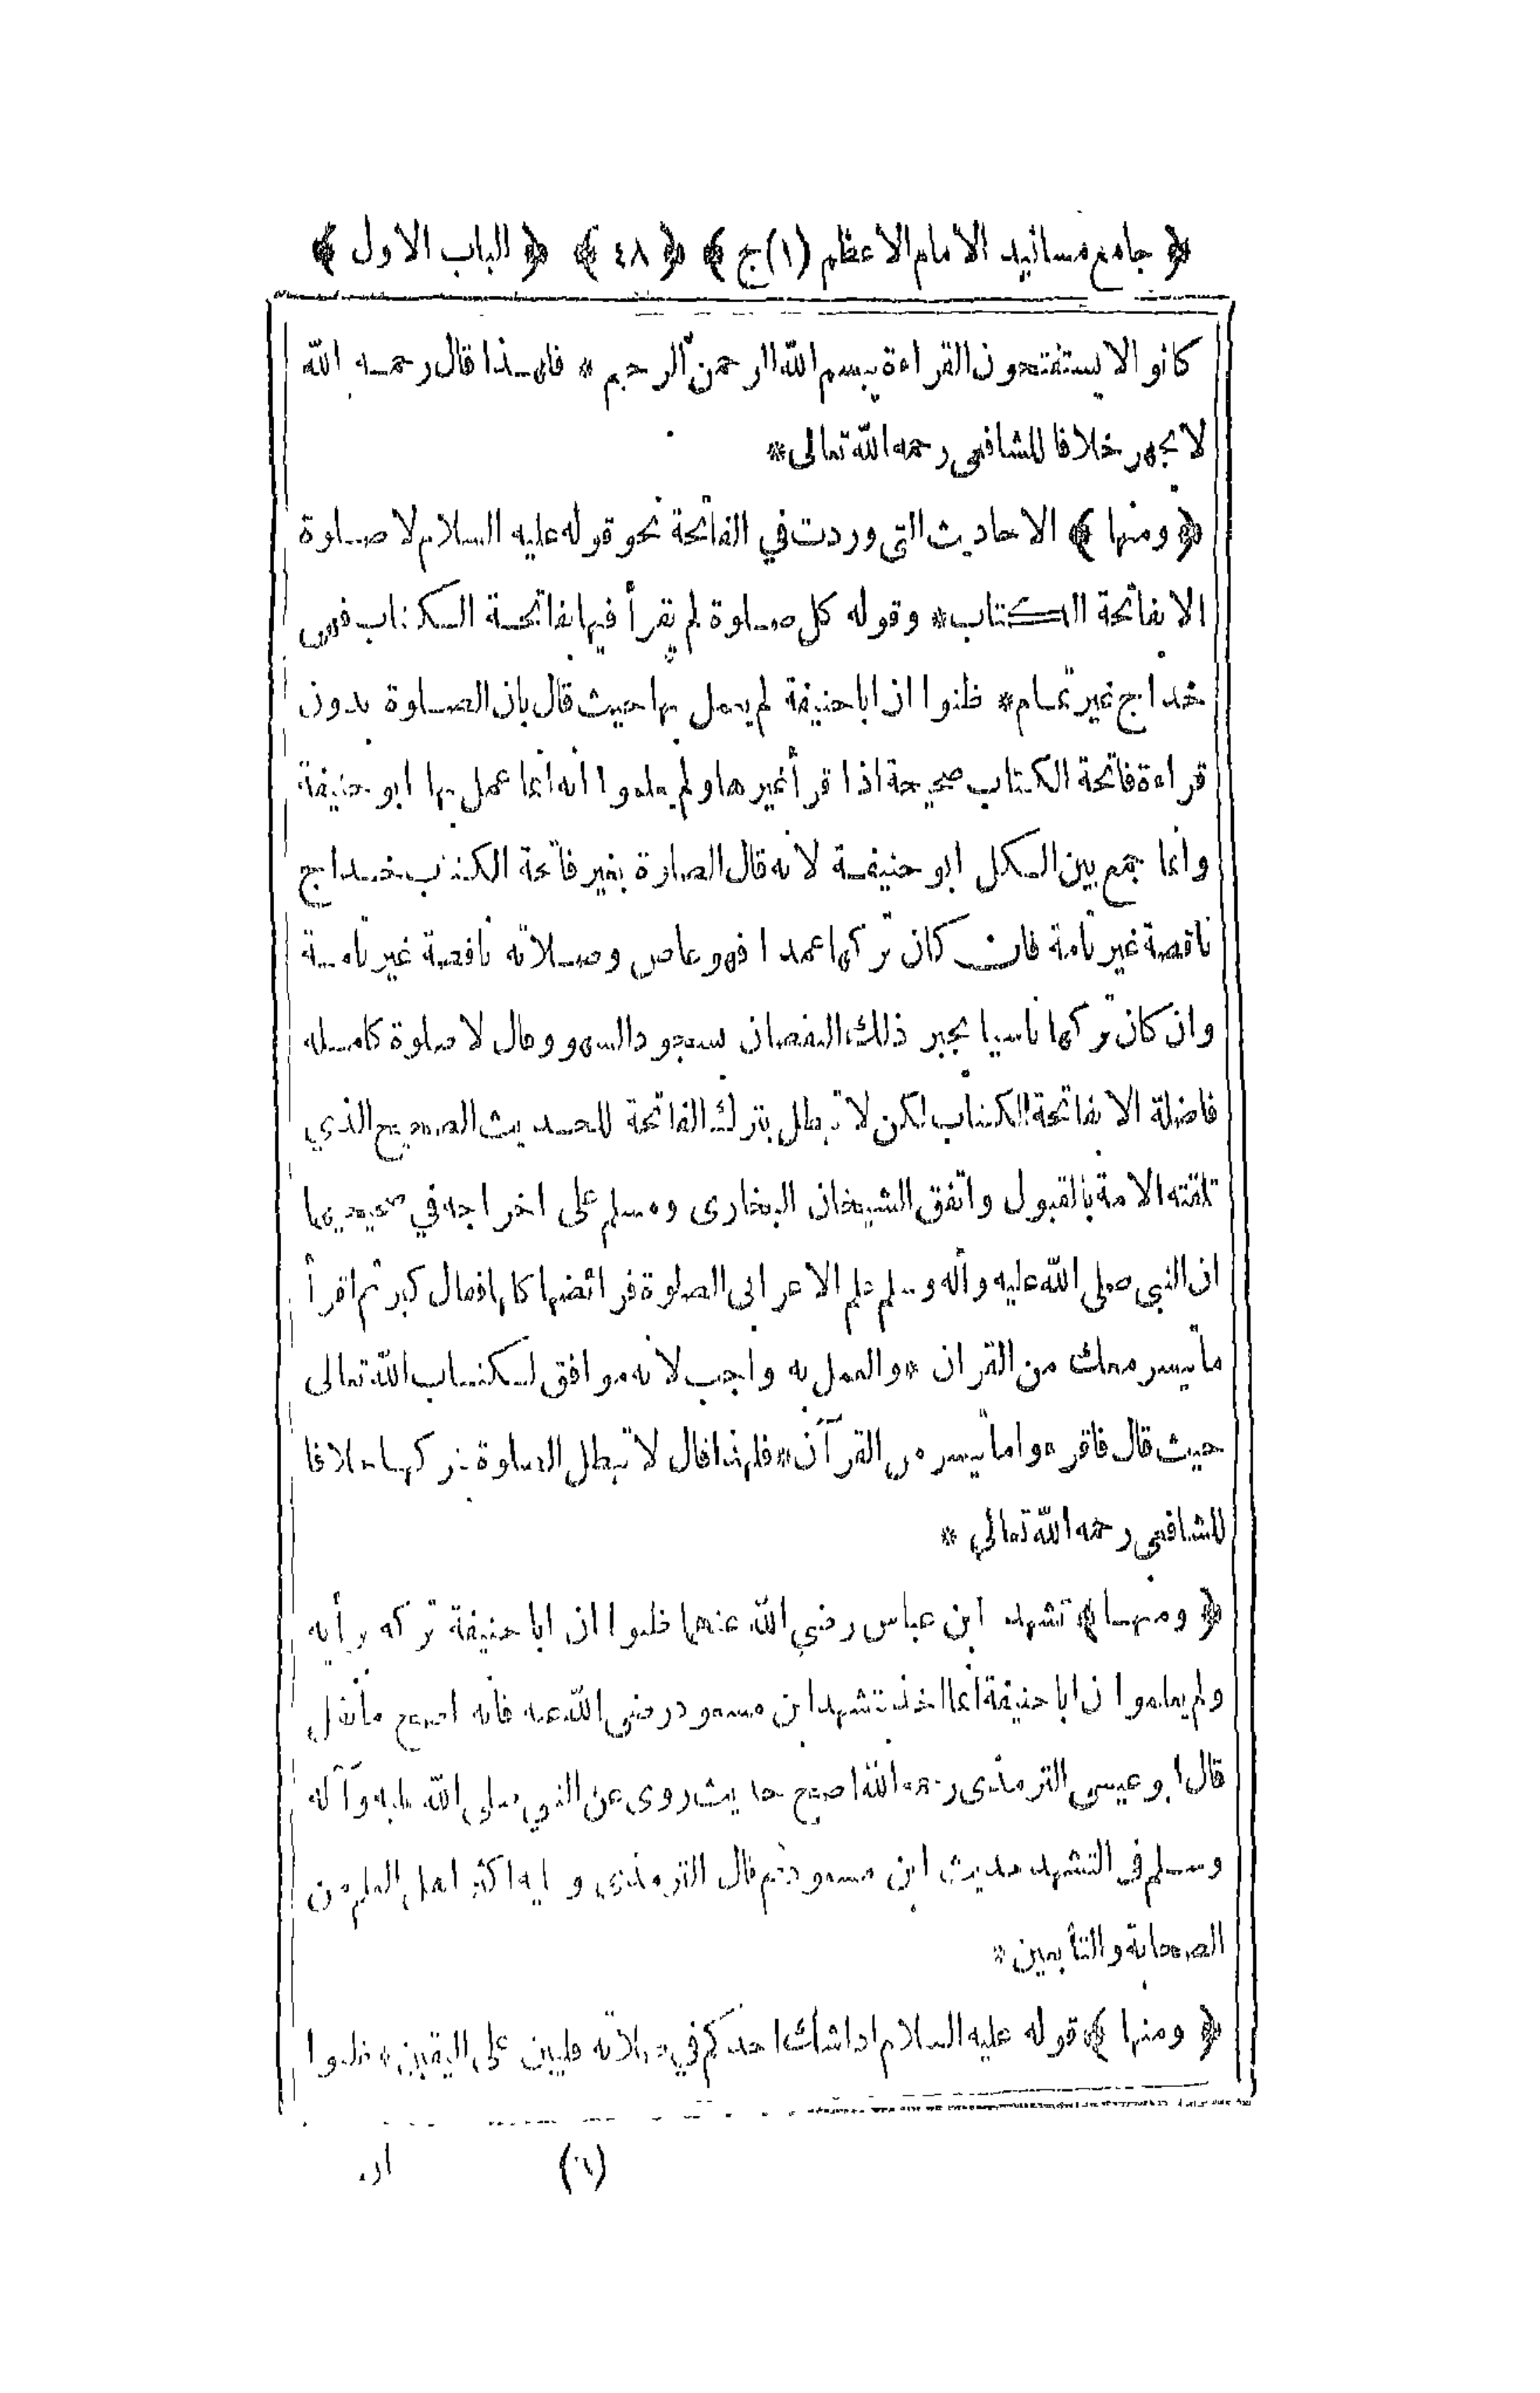 ﴿ جامع مسانيد الامام الاعظم (١) ج ﴾ ﴿ ٤٨ ﴾ ﴿ الباب الاول ﴾
كانوا لا يستفتحون القراءة ببسم الله الرحمن الرحيم * فلهذا قال رحمه الله
لا يجهر خلافا للشافعى رحمه الله تعالى *
﴿ ومنها ﴾ الاحاديث التى وردت في الفاتحة نحو قوله عليه السلام لا صلوة
الا بفاتحة الكتاب * وقوله كل صلوة لم يقرأ فيها بفاتحة الكتاب فهى
خداج غير تمام * ظنوا ان ابا حنيفة لم يعمل بها حيث قال بان الصلوة بدون
قراءة فاتحة الكتاب صحيحة اذا قرأ غيرها ولم يعلموا انه انما عمل بها ابو حنيفة
وانما جمع بين الكل ابو حنيفة لانه قال الصلوة بغير فاتحة الكتاب خداج
ناقصة غير تامة فان كان تركها عمدا فهو عاص وصلاته ناقصة غير تامة
وان كان تركها ناسيا يجبر ذلك النقصان بسجود السهو وقال لا صلوة كاملة
فاضلة الا بفاتحة الكتاب لكن لا تبطل بترك الفاتحة للحديث الصحيح الذي
تلقته الامة بالقبول واتفق الشيخان البخارى ومسلم على اخراجه في صحيحيهما
ان النبي صلى الله عليه وآله وسلم علم الاعرابى الصلوة فرائضها كلها فقال كبر ثم اقرأ
ما تيسر معك من القران * والعمل به واجب لانه موافق لكتاب الله تعالى
حيث قال فاقرءوا ما تيسر من القرآن * فلهذا قال لا تبطل الصلوة بتركها خلافا
للشافعى رحمه الله تعالي *
﴿ ومنها ﴾ تشهد ابن عباس رضي الله عنهما ظنوا ان ابا حنيفة تركه برأيه
ولم يعلموا ان ابا حنيفة انما اخذ بتشهد ابن مسعود رضى الله عنه فانه اصح ما نقل
قال ابو عيسى الترمذى رحمه الله اصح حديث روى عن النبي صلى الله عليه وآله
وسلم فى التشهد حديث ابن مسعود ثم قال الترمذى واليه اكثر اهل العلم من
الصحابة والتابعين *
﴿ ومنها ﴾ قوله عليه السلام اذا شك احدكم في صلاته فليبن على اليقين * ظنوا
(٦) ان